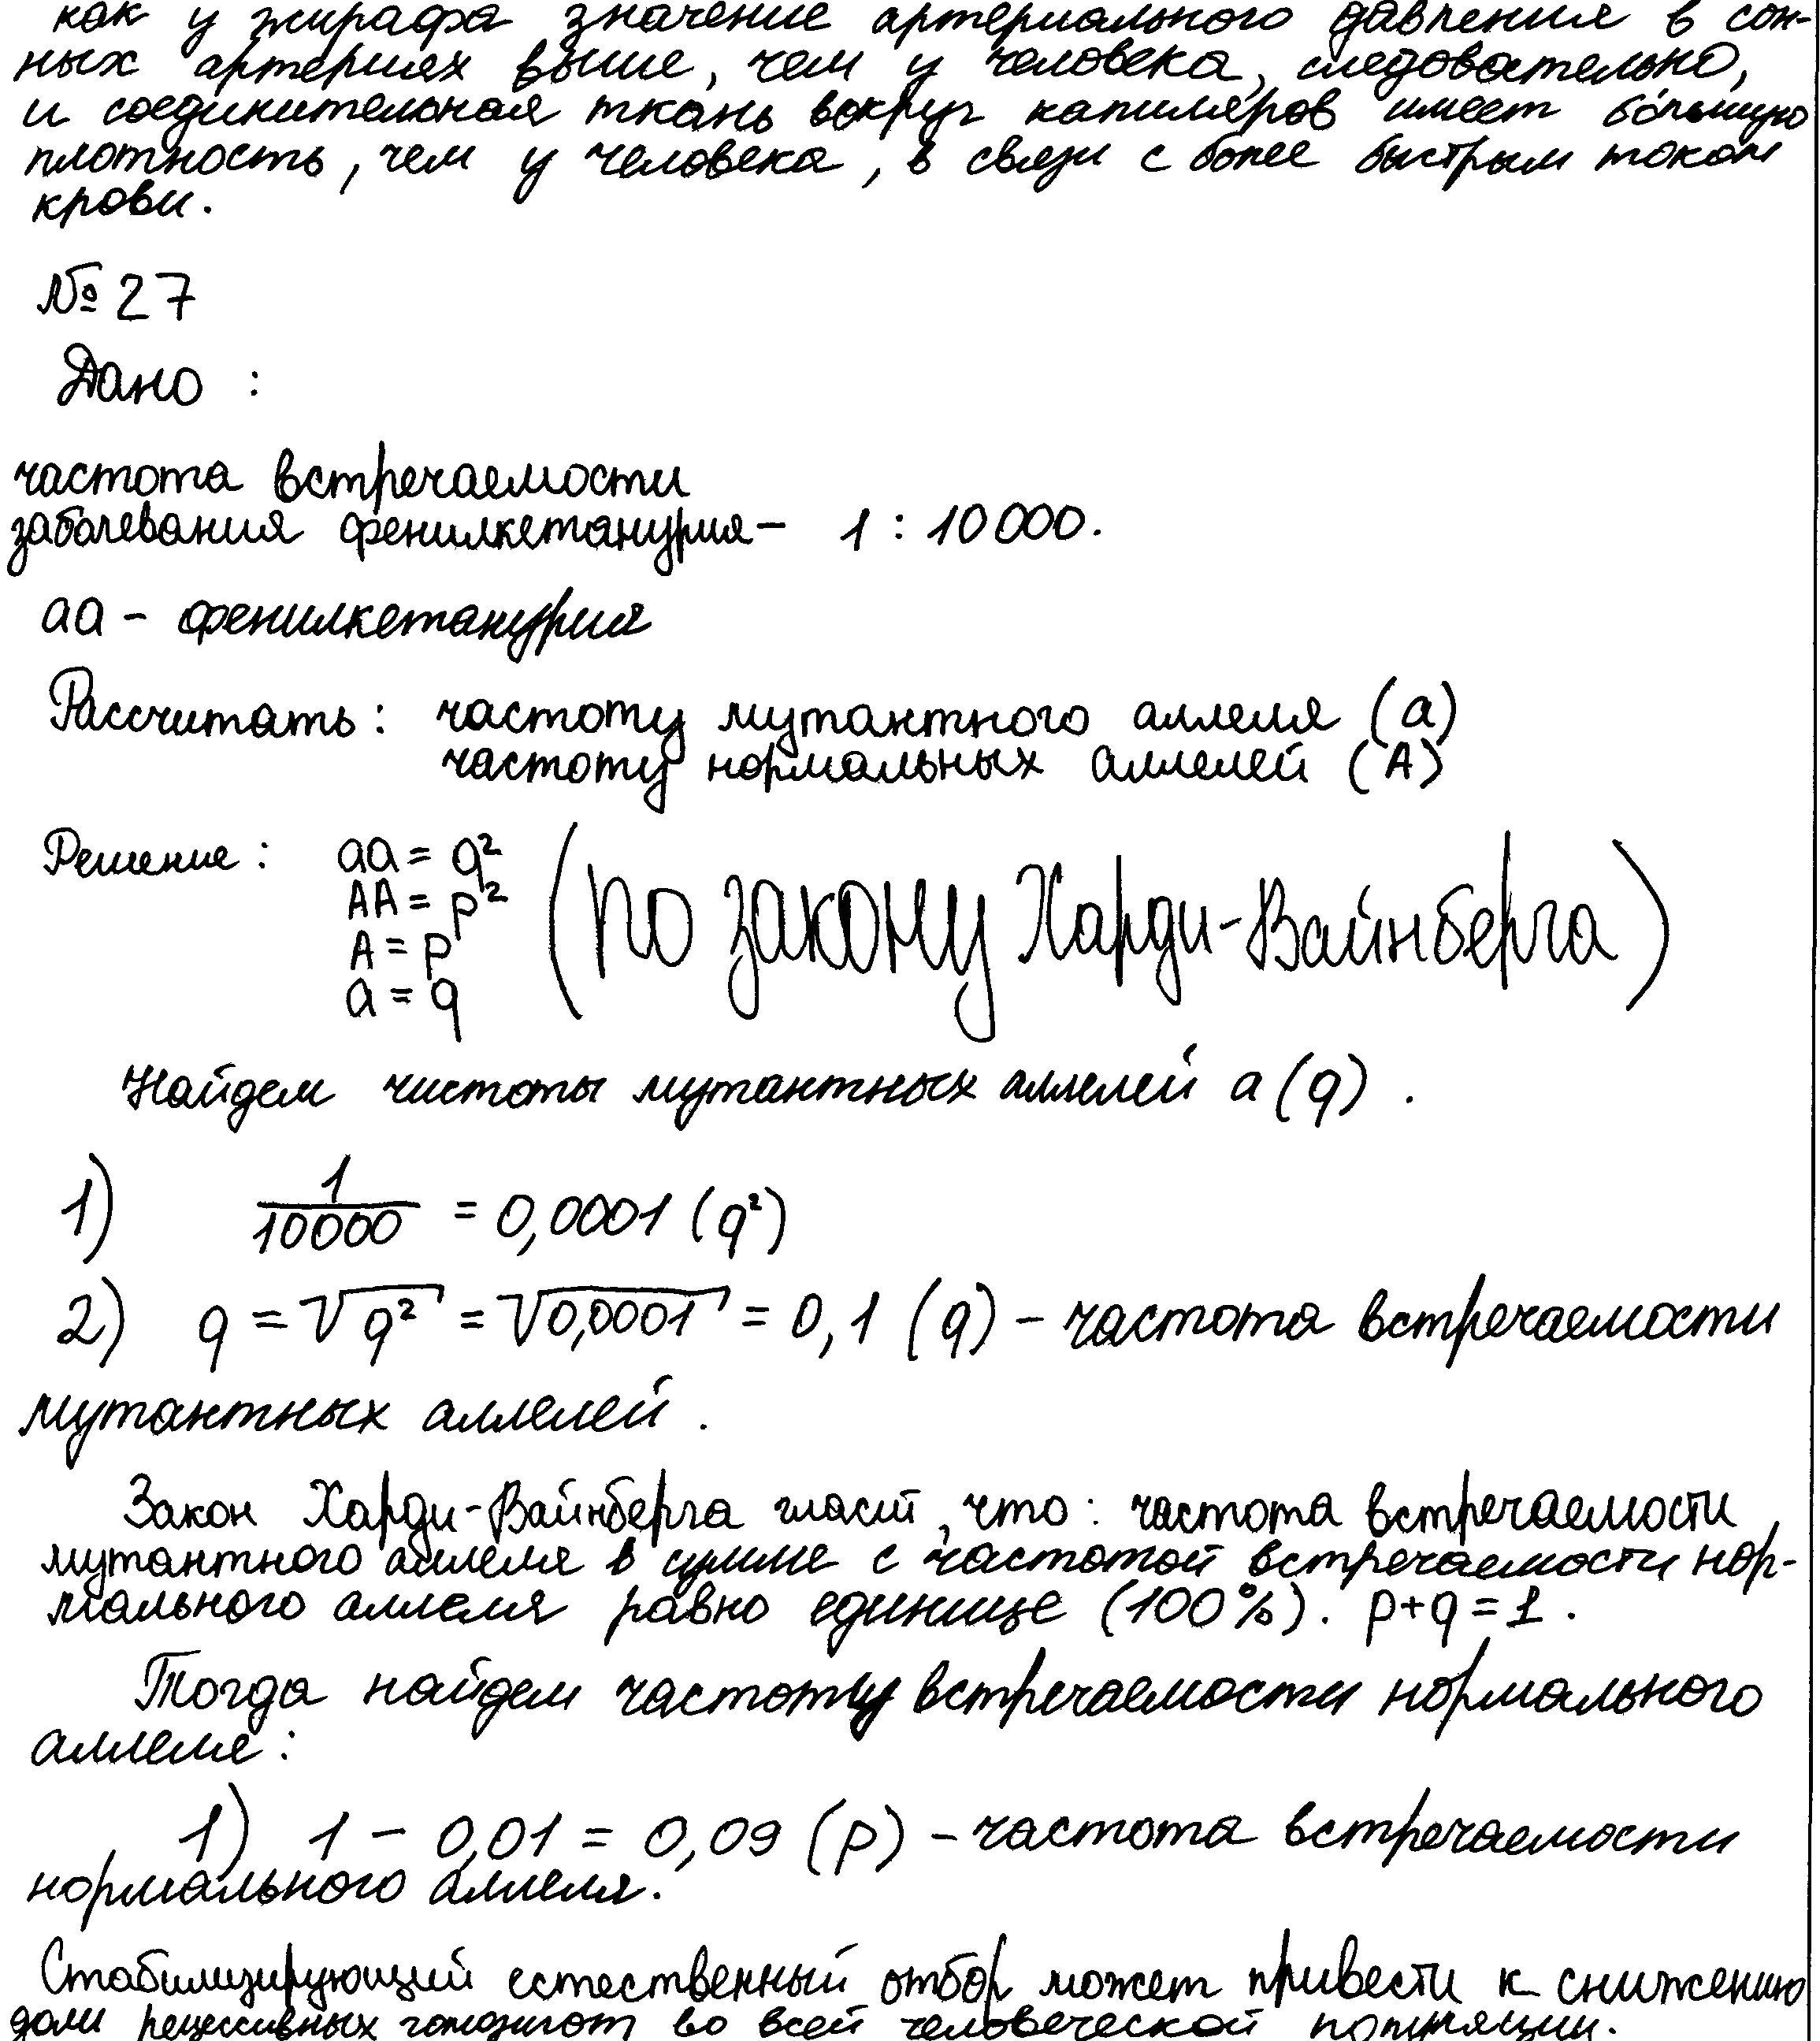 как у жирафа значение артериального давления в сон-
ных артериях выше, чем у человека, следовательно,
и соединительная ткань вокруг капиляров имеет бо́льшую
плотность, чем у человека, в связи с более быстрым током
крови.
№ 27
Дано :
частота встречаемости
заболевания фенилкетанурия – 1 : 10 000.
аа – фенилкетанурия
Рассчитать : частоту мутантного аллеля (а)
частоту нормальных аллелей (А)
Решение : аа = q²
АА = p²
А = p
а = q
(по закону Харди-Вайнберга)
Найдем чистоты мутантных аллелей а (q) .
1) 1/10000 = 0,0001 (q²)
2) q = √q² = √0,0001 = 0,1 (q) – частота встречаемости
мутантных аллелей .
Закон Харди-Вайнберга гласит, что : частота встречаемости
мутантного аллеля в сумме с частотой встречаемости нор-
мального аллеля равно единице (100%). p+q = 1 .
Тогда найдем частоту встречаемости нормального
аллеля :
1) 1 – 0,01 = 0,09 (p) – частота встречаемости
нормального аллеля.
Стабилизирующий естественный отбор может привести к снижению
доли рецессивных гомозигот во всей человеческой популяции.